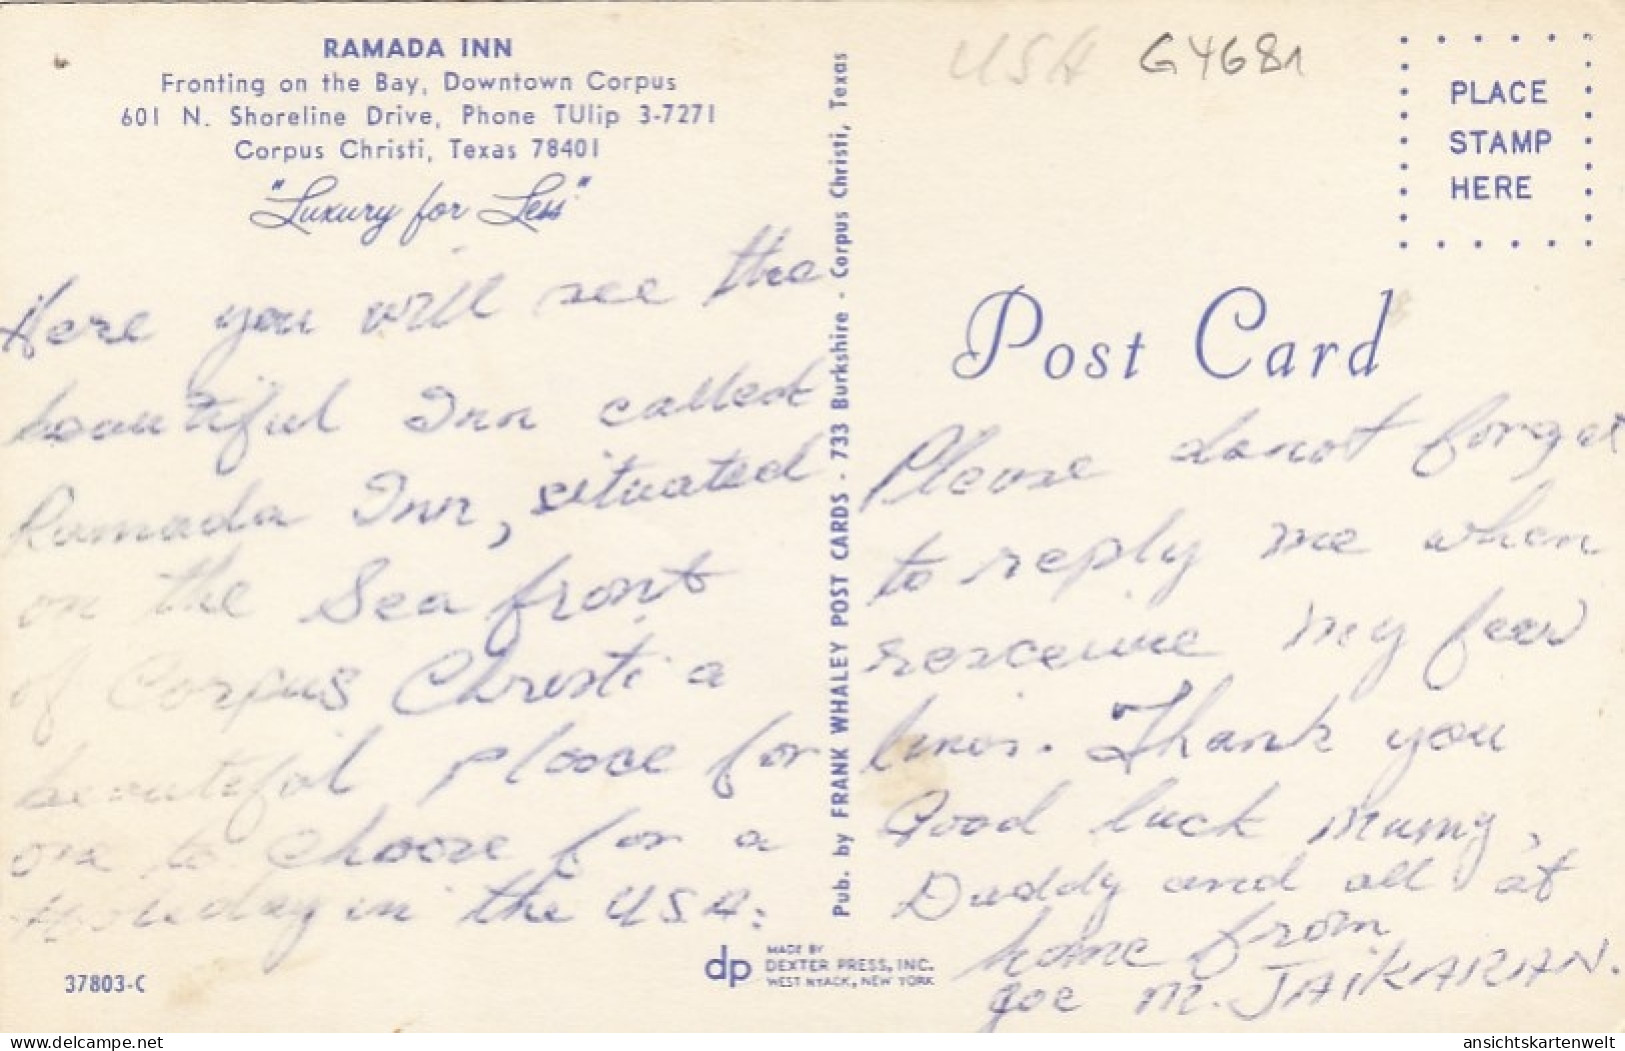 RAMADA INN
Fronting on the Bay, Downtown Corpus
601 N. Shoreline Drive, Phone TUlip 3-7271
Corpus Christi, Texas 78401
"Luxury for Less"
Here you will see the
beautiful Inn called
Ramada Inn, situated
on the Sea front
of Corpus Christi a
beautiful place for
one to choose for a
Holiday in the USA.
37803-C
Pub. by FRANK WHALEY POST CARDS - 733 Burkshire - Corpus Christi, Texas
dp MADE BY
DEXTER PRESS, INC.
WEST NYACK, NEW YORK
USA G4681
PLACE
STAMP
HERE
Post Card
Please donot forget
to reply me when
my few
lines. Thank you
Good luck Mumy,
Daddy and all at
home from
Joe M. JAIKARAN.
delcampe.net
ansichtskartenwelt